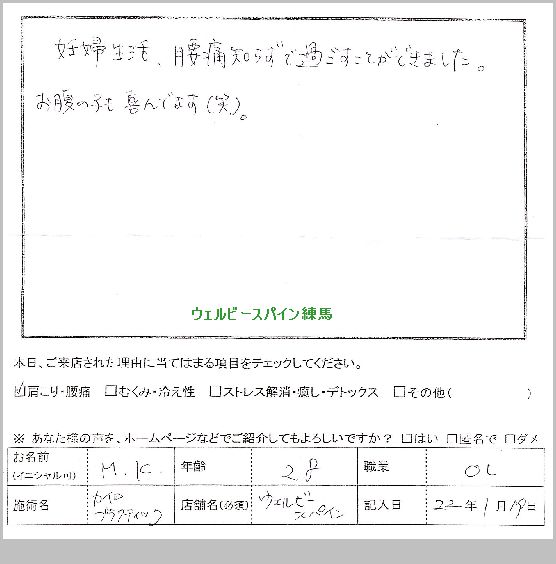 妊婦生活、腰痛知らずで過ごすことができました。
お腹の子も喜んでます(笑)。
ウェルビースパイン練馬
本日、ご来店された理由に当てはまる項目をチェックしてください。
☑肩こり・腰痛 □むくみ・冷え性 □ストレス解消・癒し・デトックス □その他( )
※ あなた様の声を、ホームページなどでご紹介してもよろしいですか？ □はい □匿名で □ダメ
お名前 (イニシャル可) M.K. 年齢 28 職業 OL
施術名 カイロプラクティック 店舗名(必須) ウェルビースパイン 記入日 22年1月19日